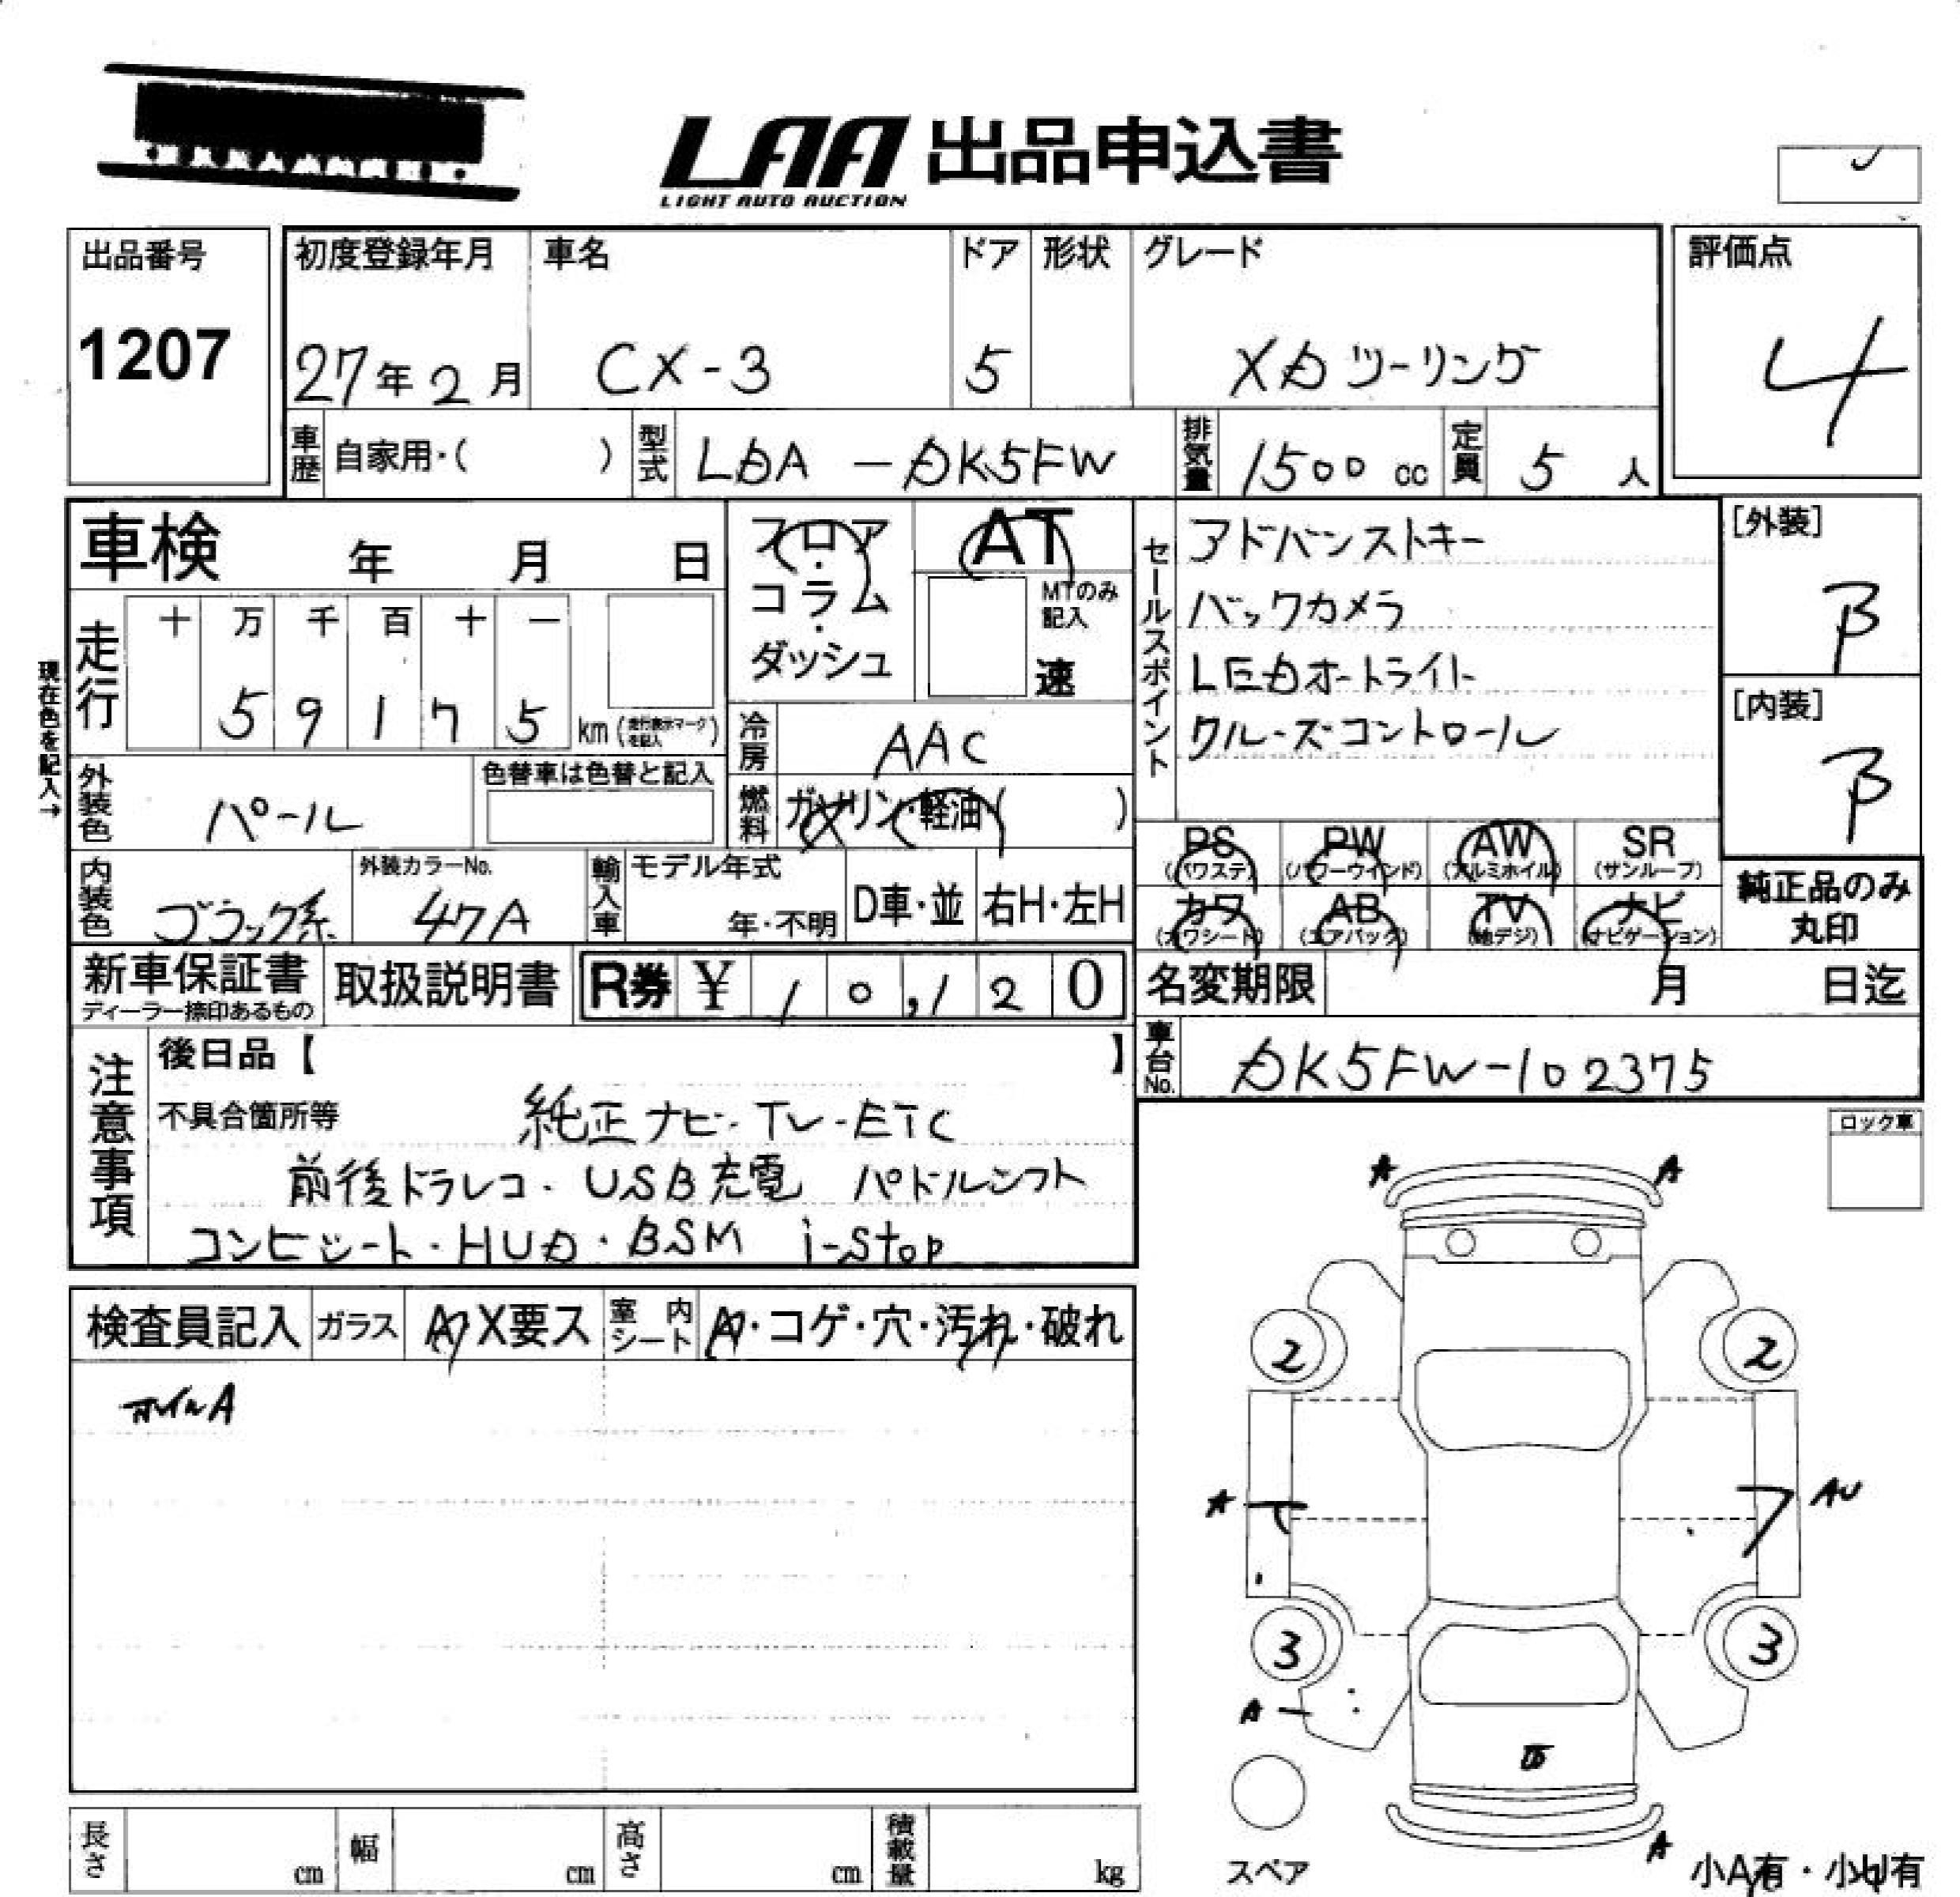 LAA 出品申込書
LIGHT AUTO AUCTION
出品番号
1207
初度登録年月
27年2月
車名
CX-3
ドア
5
形状
グレード
XDツーリング
評価点
4
車歴 自家用・( )
型式 LDA-DK5FW
排気量 1500 cc
定員 5 人
車検 年 月 日
フロア・コラム・ダッシュ
AT
MTのみ記入
速
セールスポイント
アドバンストキー
バックカメラ
LEDオートライト
クルーズコントロール
[外装]
B
[内装]
B
現在色を記入→
走行
十 万 千 百 十 一
5 9 1 7 5 km (走行表示マークを記入)
冷房 AAC
燃料 ガソリン・軽油( )
外装色 パール
色替車は色替と記入
内装色 ブラック系
外装カラーNo.
47A
輸入車
モデル年式
年・不明
D車・並
右H・左H
PS (パワステ)
PW (パワーウインド)
AW (アルミホイル)
SR (サンルーフ)
カワ (カワシート)
AB (エアバック)
TV (地デジ)
ナビ (ナビゲーション)
純正品のみ丸印
新車保証書
ディーラー捺印あるもの
取扱説明書
R券 ¥ 10,120
名変期限 月 日迄
車台No. DK5FW-102375
注意事項
後日品【 】
不具合箇所等
純正ナビ・TV・ETC
前後ドラレコ・USB充電 パドルシフト
コンビシート・HUD・BSM i-stop
ロック車
検査員記入
ガラス A X要ス
室内シート A・コゲ・穴・汚れ・破れ
ホイルA
A A
2 2
A AU
3 3
A
A
スペア
小A有・小U有
長さ cm
幅 cm
高さ cm
積載量 kg